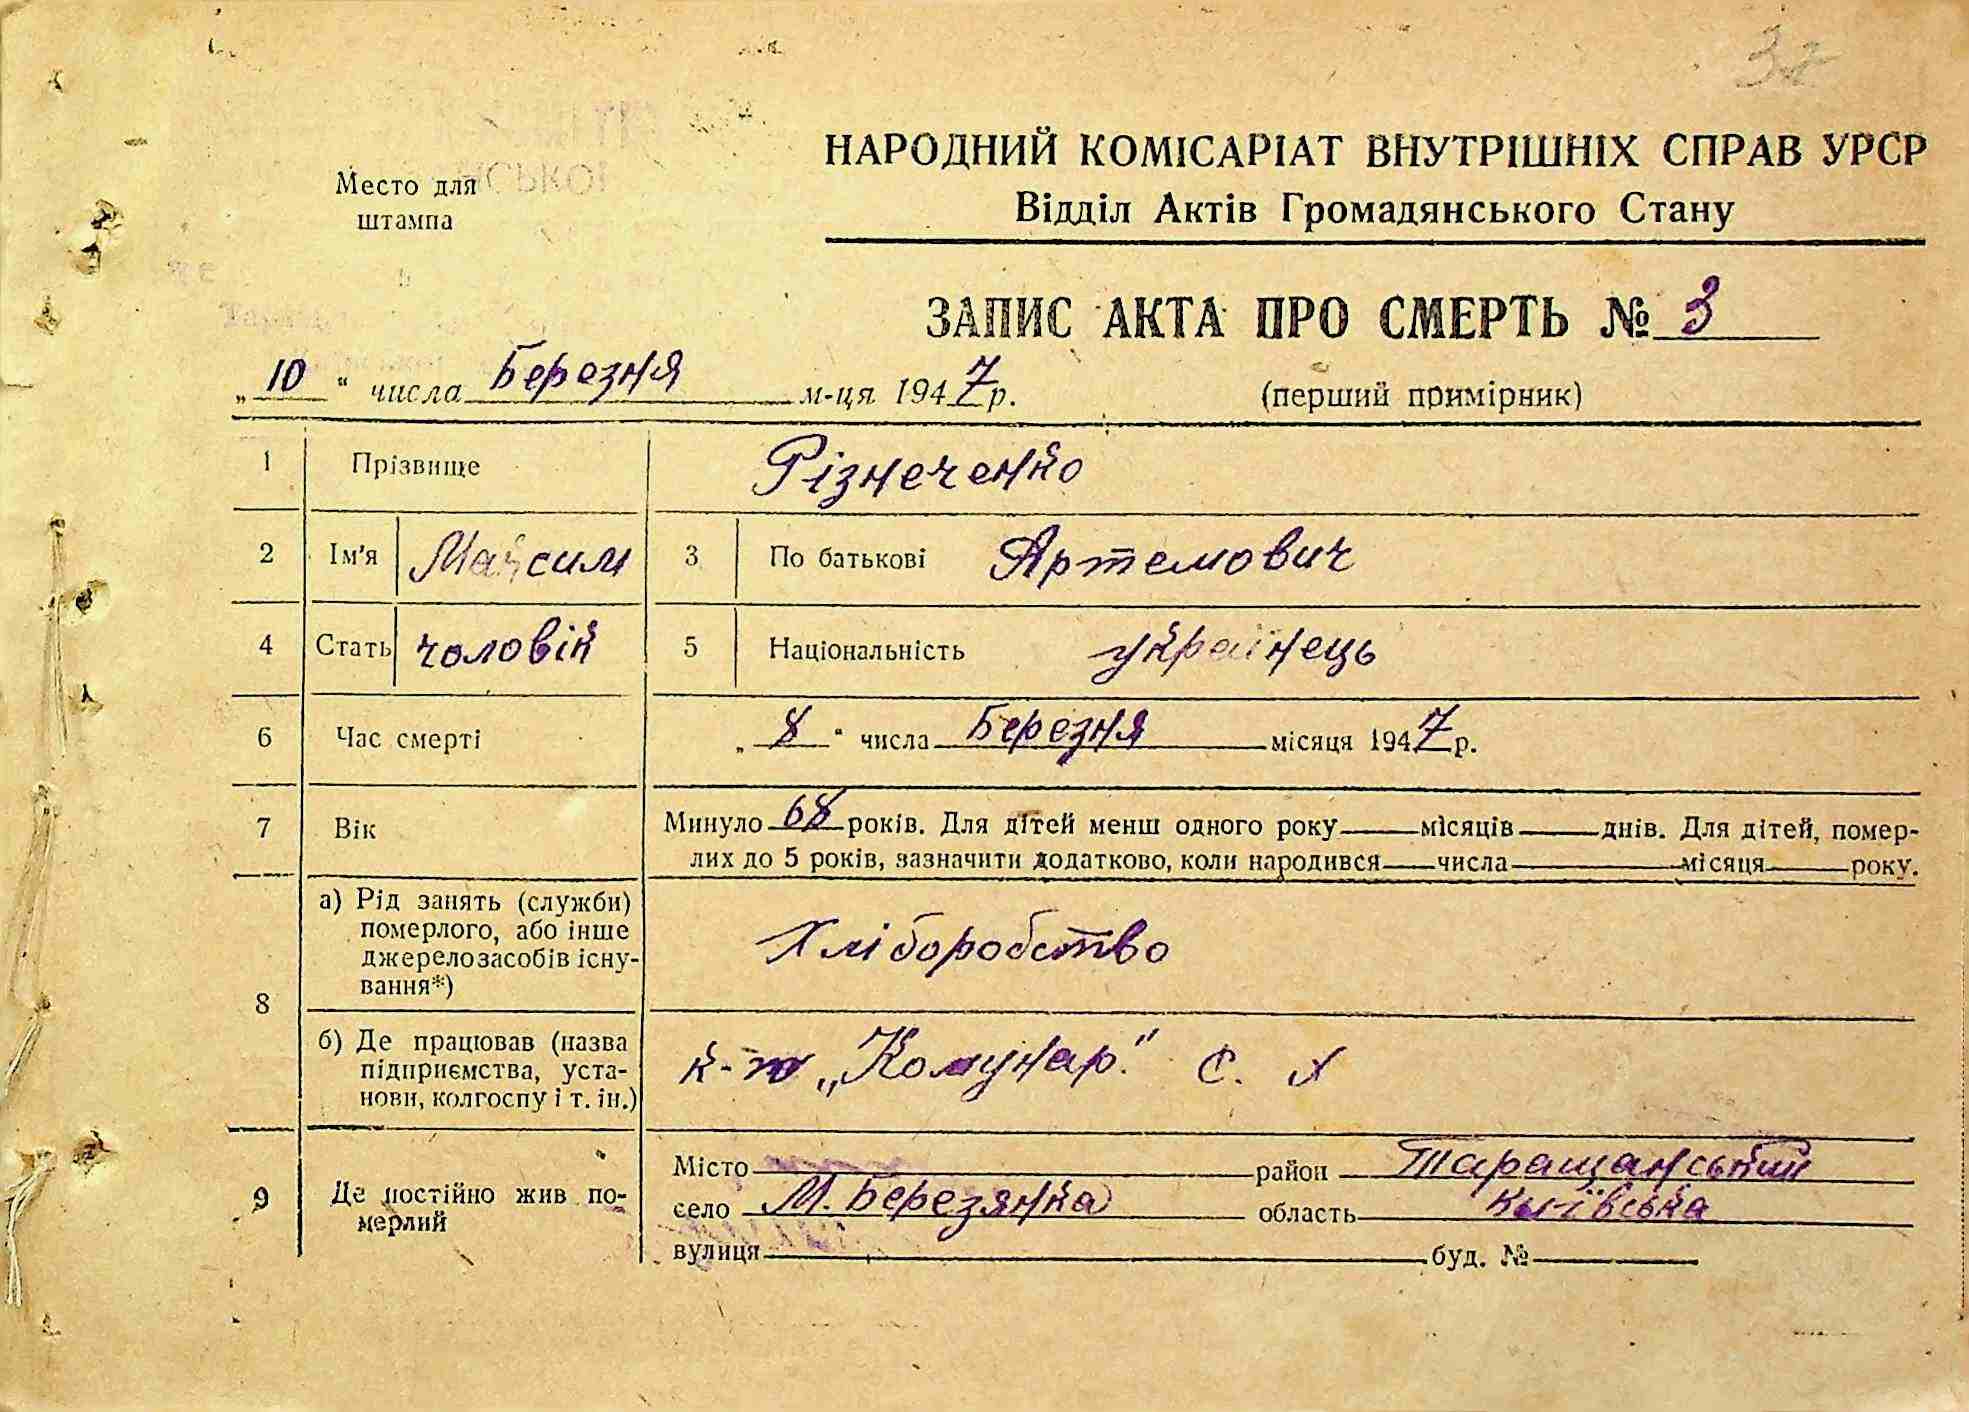 НАРОДНИЙ КОМІСАРІАТ ВНУТРІШНІХ СПРАВ УРСР
Место для штампа
Відділ Актів Громадянського Стану
ЗАПИС АКТА ПРО СМЕРТЬ № 3
„10“ числа Березня м-ця 1947 р. (перший примірник)
1 Прізвище Різнеченко
2 Ім'я Максим 3 По батькові Артемович
4 Стать чоловік 5 Національність українець
6 Час смерті „8“ числа Березня місяця 1947 р.
7 Вік Минуло 68 років. Для дітей менш одного року — місяців — днів. Для дітей, помер-
лих до 5 років, зазначити додатково, коли народився — числа — місяця — року.
8 а) Рід занять (служби)
померлого, або інше
джерелозасобів існу-
вання*)
Хліборобство
б) Де працював (назва
підприємства, уста-
нови, колгоспу і т. ін.)
к-т „Комунар." С. Х
9 Де постійно жив по-
мерлий
Місто район Таращанський
село М. Березянка область Київська
вулиця буд. №